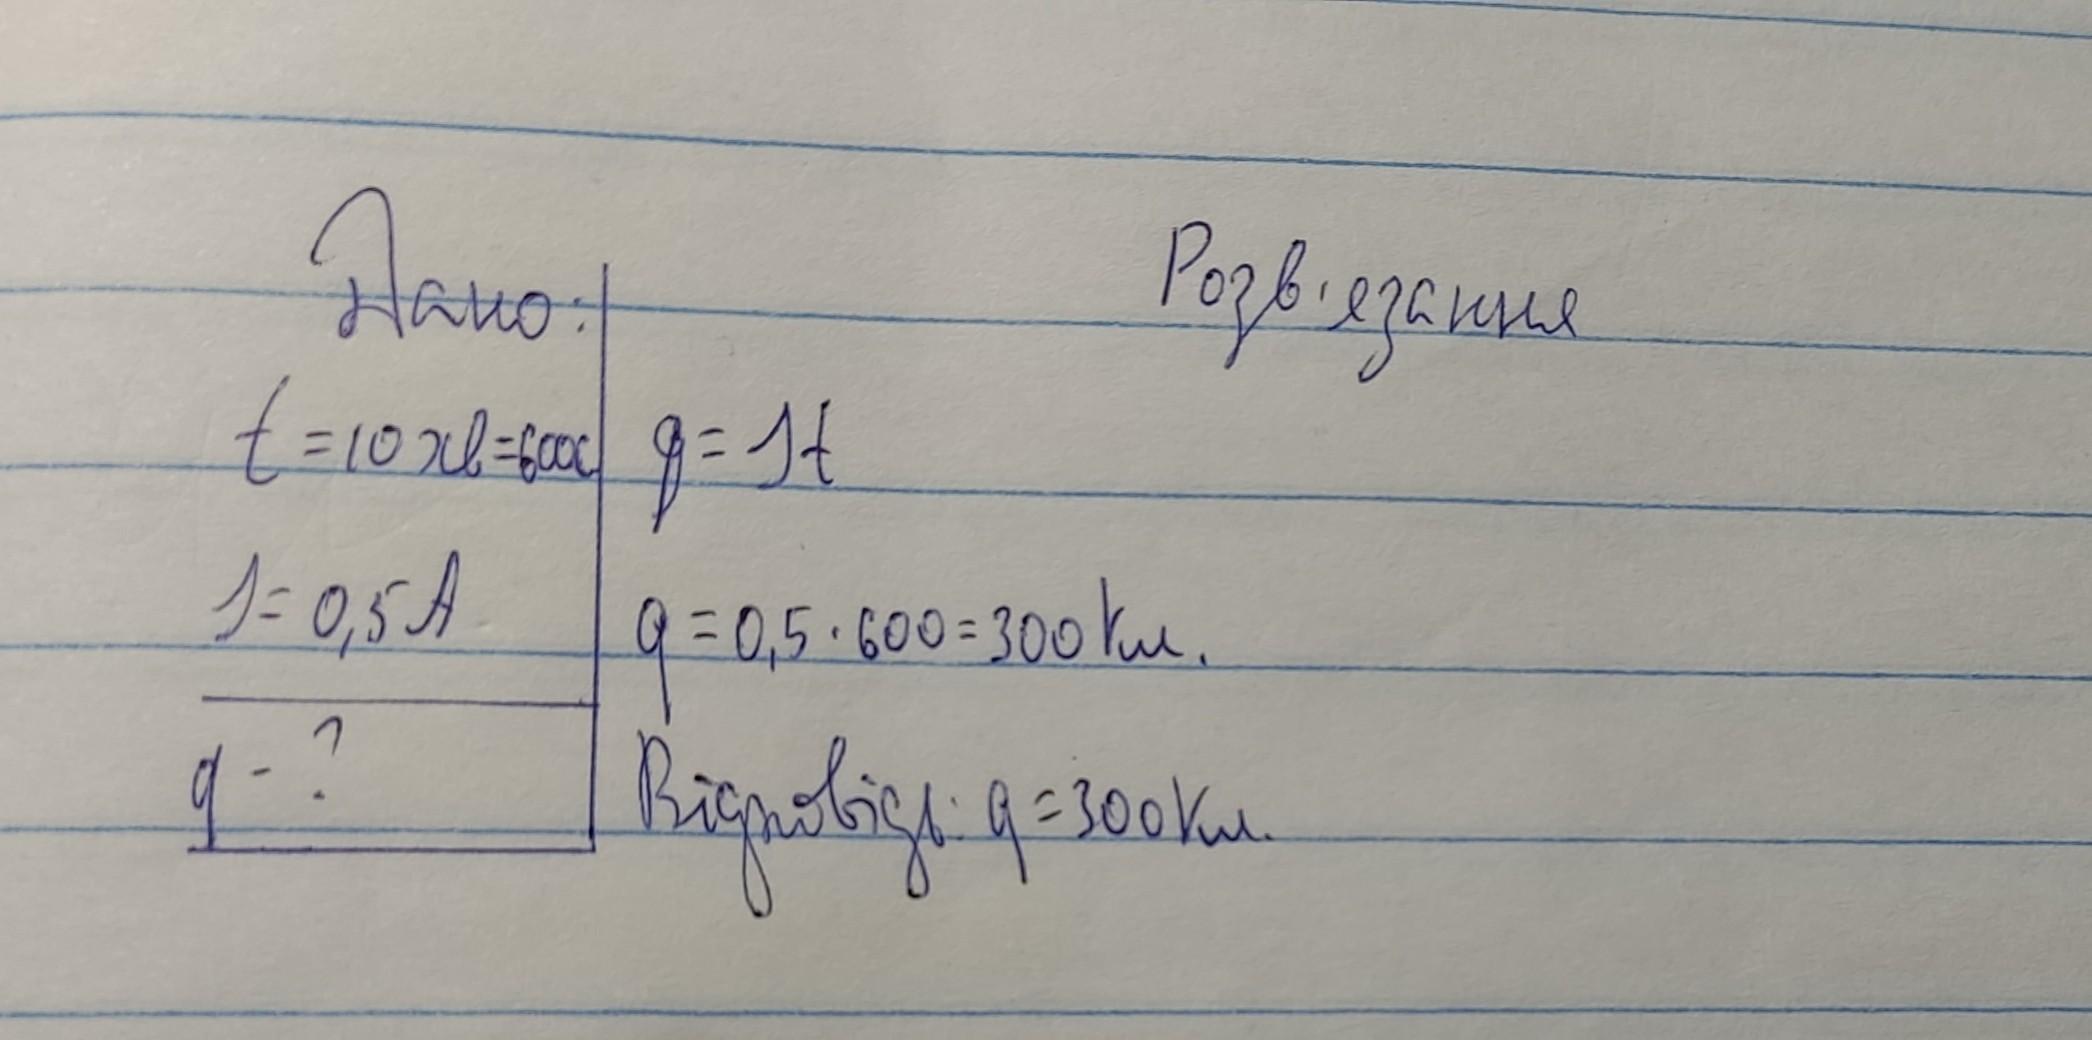 Дано:
Розв'язання
t = 10 хв = 600с
q = It
I = 0,5 А
q = 0,5 · 600 = 300 Кл.
q - ?
Відповідь: q = 300 Кл.